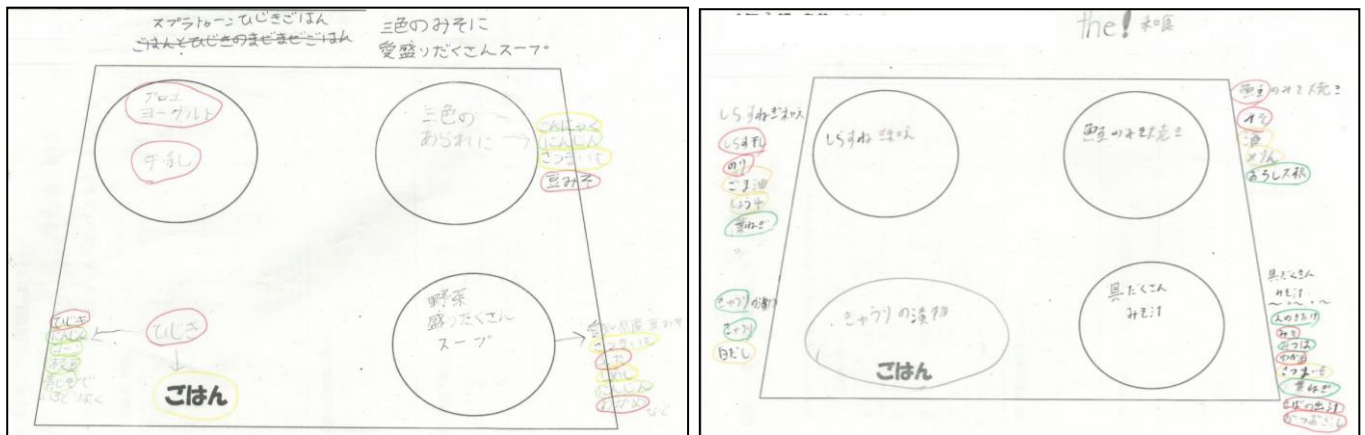 スプラトゥーンひじきごはん
ごはんとひじきのまぜまぜごはん
三色のみそに
愛盛りだくさんスープ
アロエ
ヨーグルト
牛乳
三色の
あられに
こんにゃく
にんじん
さつまいも
豆みそ
ひじき
にんじん
ひじき
ごはん
野菜
盛りだくさん
スープ
さつまいも
しめじ
にんじん
わかめ
など
the! 和食
しらすねぎまぜ
しらす干し
のり
ごま油
しょうゆ
葉ねぎ
魚のみそ焼き
みそ
酒
みりん
おろし大根
魚のみそ焼き
きゅうりの漬物
きゅうり
白だし
きゅうりの漬物
ごはん
具だくさん
みそ汁
具だくさん
みそ汁
えのきたけ
みそ
わかめ
さつまいも
葉ねぎ